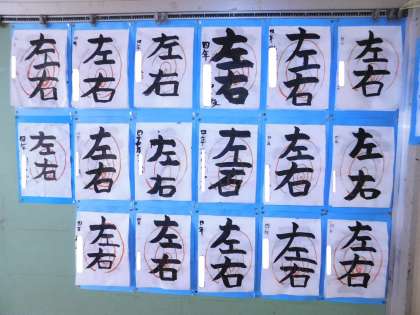 左右
左右
左右
左右
四年
左右
左右
左右
四年
左右
左右
左右
左右
左右
左右
左右
左右
左右
左右